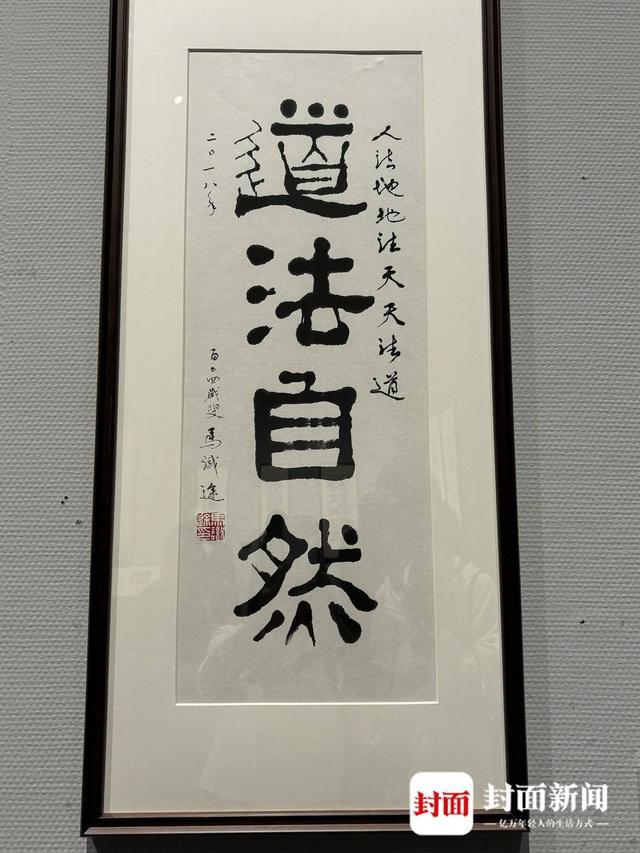 人法地地法天天法道
道法自然
二〇一八年
百〇四歲叟馬識途
封面
封面新闻
亿万年轻人的生活方式